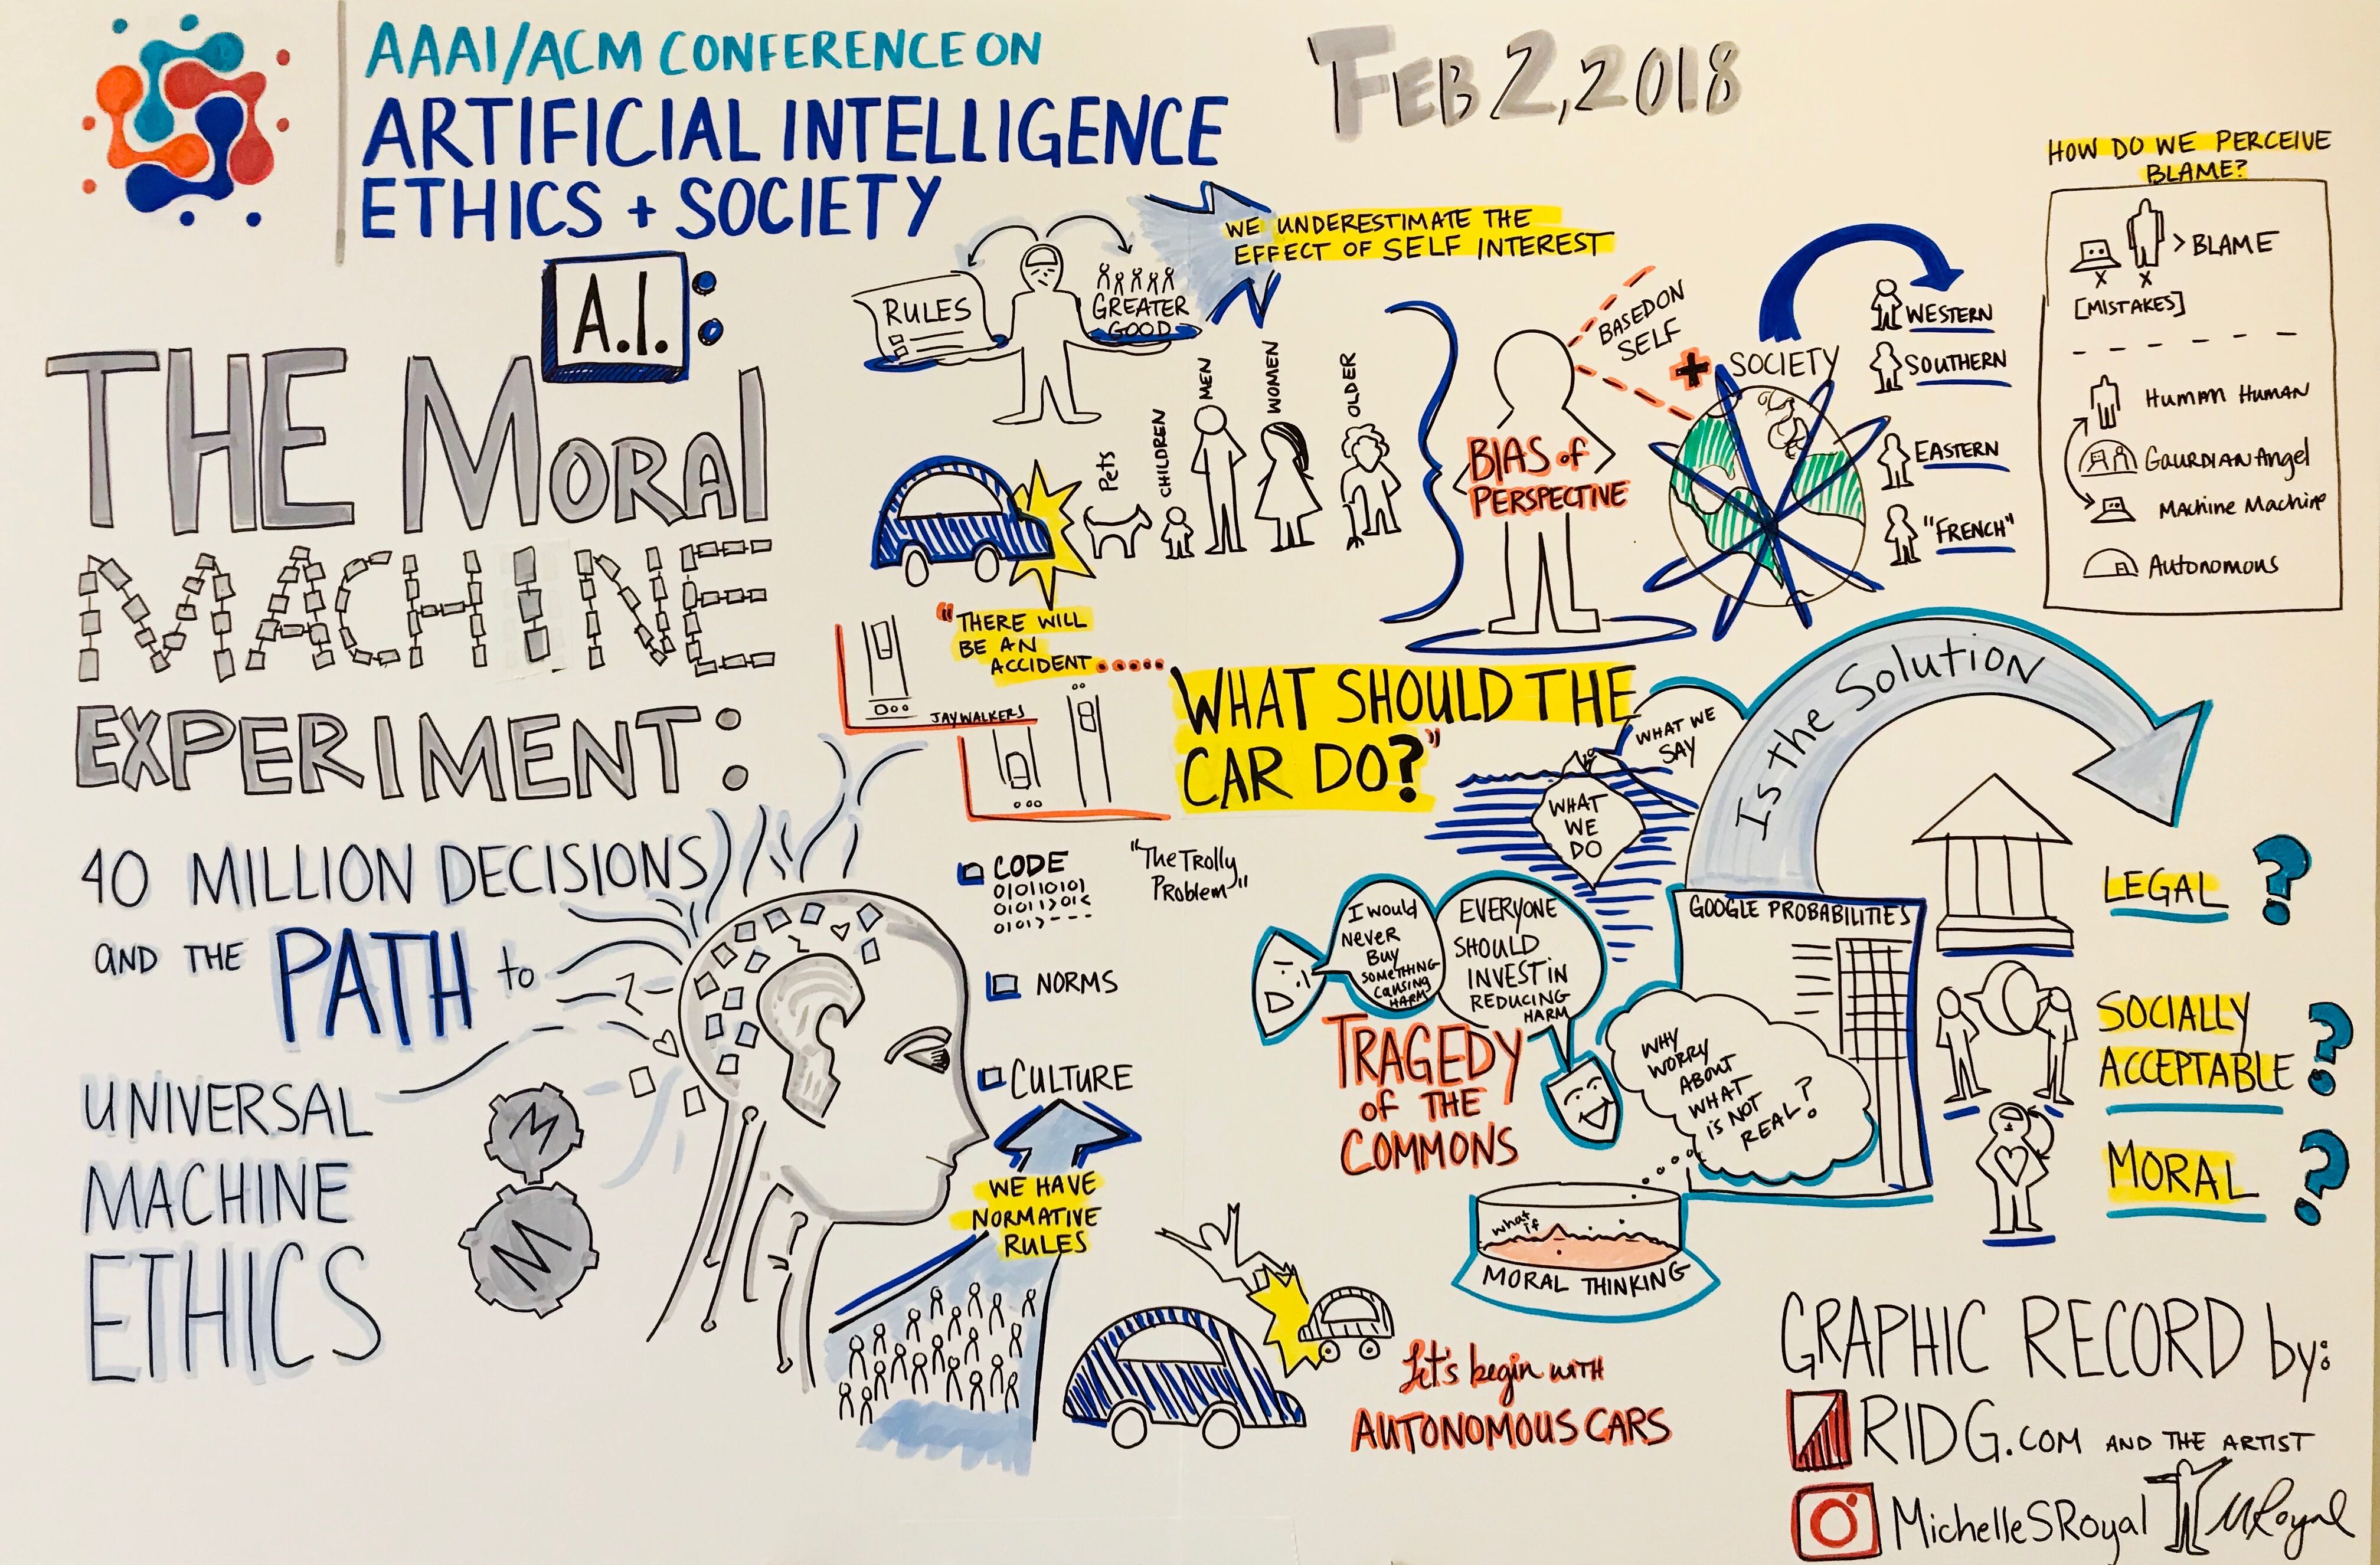 AAAI/ACM CONFERENCE ON
ARTIFICIAL INTELLIGENCE
ETHICS + SOCIETY
FEB 2, 2018
A.I.:
THE MORAL
MACHINE
EXPERIMENT:
40 MILLION DECISIONS
AND THE PATH to
UNIVERSAL
MACHINE
ETHICS
M
M
RULES
GREATER
GOOD
WE UNDERESTIMATE THE
EFFECT OF SELF INTEREST
Pets
CHILDREN
MEN
WOMEN
OLDER
BIAS of
PERSPECTIVE
BASED ON
SELF
+
SOCIETY
WESTERN
SOUTHERN
EASTERN
"FRENCH"
HOW DO WE PERCEIVE
BLAME?
> BLAME
x x
[MISTAKES]
Human HUMAN
GAURDIAN Angel
MAchine Machine
Autonomous
"THERE WILL
BE AN
ACCIDENT.....
JAYWALKERS
WHAT SHOULD THE
CAR DO?"
"The Trolly
Problem"
CODE
NORMS
CULTURE
WE HAVE
NORMATIVE
RULES
WHAT WE
SAY
WHAT
WE
DO
I would
Never
Buy
SOMETHING
CAUSING
HARM
EVERYONE
SHOULD
INVEST IN
REDUCING
HARM
TRAGEDY
of THE
COMMONS
Is the Solution
GOOGLE PROBABILITIES
WHY
WORRY
ABOUT
WHAT
is NOT
REAL?
what
if
MORAL THINKING
LEGAL ?
SOCIALLY
ACCEPTABLE ?
MORAL ?
Let's begin WITH
AUTONOMOUS CARS
GRAPHIC RECORD by:
RIDG.COM AND THE ARTIST
MichelleSRoyal
MRoyal